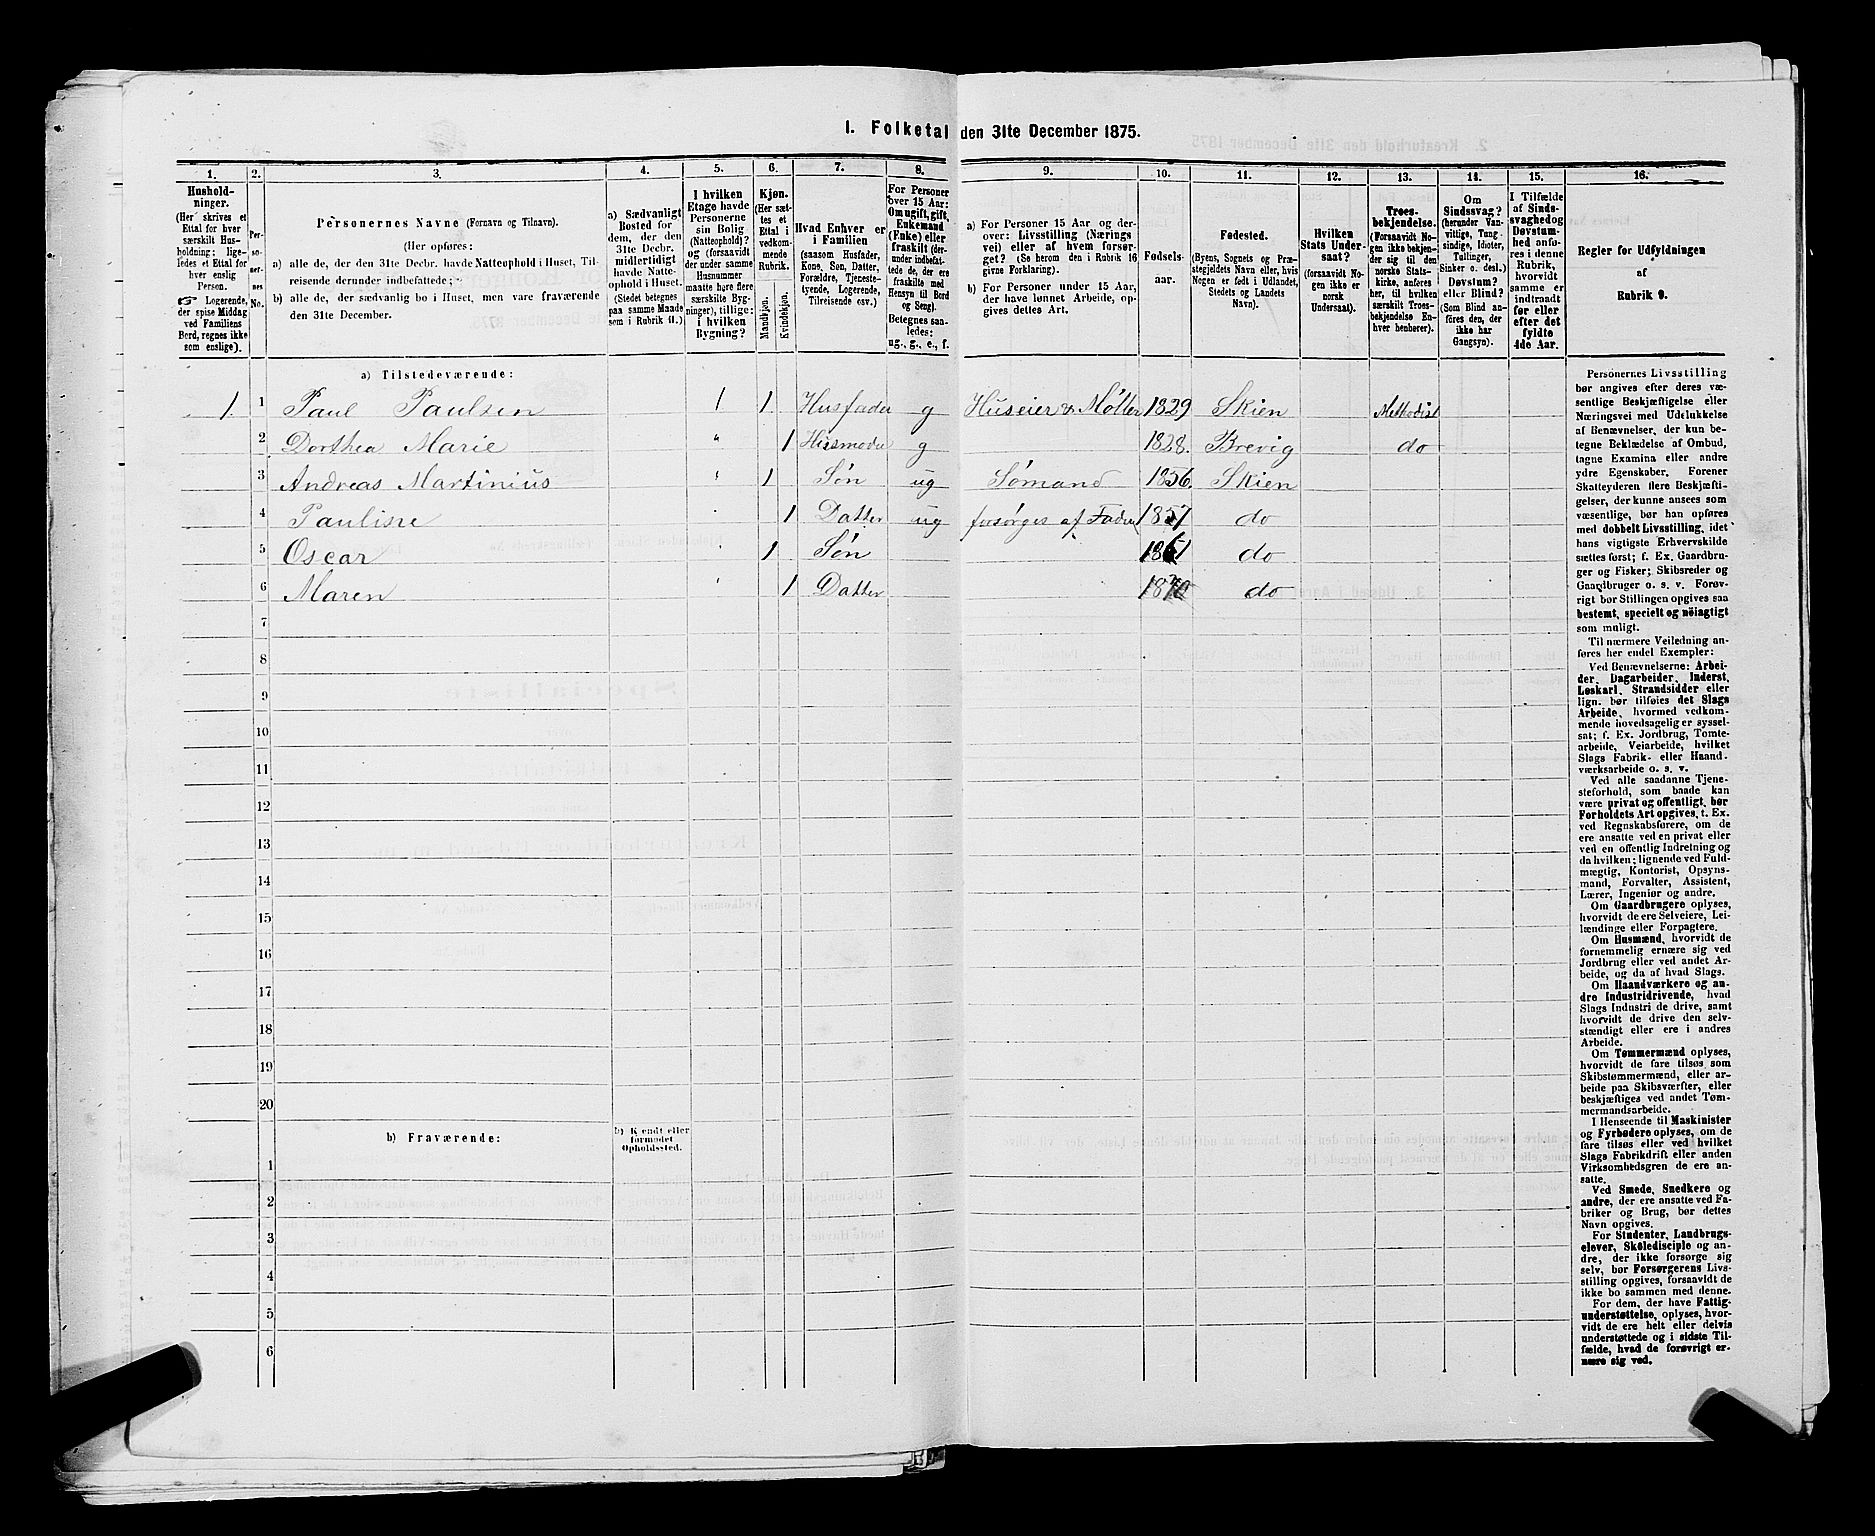 1. Folketal den 31te December 1875.
1. 2. 3. 4. 5. 6. 7. 8. 9. 10. 11. 12. 13. 14. 15. 16.
Hushold-
ninger.
(Her skrives et
Ettal for hver
særskilt Hus-
holdning; lige-
ledes et Ettal for
hver enslig
Person.
☞ Logerende,
der spise Middag
ved Familiens
Bord, regnes ikke
som enslige).
Per-
so-
ner-
nes
No.
Personernes Navne (Fornavn og Tilnavn).
(Her opføres:
a) alle de, der den 31te Decbr. havde Natteophold i Huset, Til-
reisende derunder indbefattede;
b) alle de, der sædvanlig bo i Huset, men vare fraværende
den 31te December.
a) Sædvanligt
Bosted for
dem, der den
31te Decbr.
midlertidigt
havde Natte-
ophold i Huset.
(Stedet betegnes
paa samme Maade
som i Rubrik 11.)
I hvilken
Etage havde
Personerne
sin Bolig
(Natteophold)?
og (forsaavidt
der under samme
Husnummer
maatte høre flere
særskilte Byg-
ninger), tillige:
i hvilken
Bygning?
Kjøn.
(Her sæt-
tes et
Ettal i
vedkom-
mende
Rubrik.
Mandkjøn.
Kvindekjøn.
Hvad Enhver er
i Familien
(saasom Husfader,
Kone, Søn, Datter,
Forældre, Tjeneste-
tyende, Logerende,
Tilreisende osv.)
For Personer
over 15 Aar:
Om ugift, gift,
Enkemand
(Enke) eller
fraskilt (der-
under indbefat-
tede de, der ere
fraskilte med
Hensyn til Bord
og Seng).
Betegnes saa-
ledes:
ug., g., e., f.
a) For Personer 15 Aar og der-
over: Livsstilling (Nærings-
vei) eller af hvem forsør-
get? (Se herom den i Rubrik 16
givne Forklaring).
b) For Personer under 15 Aar,
der have lønnet Arbeide, op-
gives dettes Art.
Fødsels-
aar.
Fødested.
(Byens, Sognets og Præ-
stegjeldets Navn eller, hvis
Nogen er født i Udlandet,
Stedets og Landets
Navn).
Hvilken
Stats Under-
saat?
(forsaavidt No-
gen ikke er
norsk
Undersaat).
Troes-
bekjendelse.
(Forsaavidt No-
gen ikke bekjen-
der sig til den
norske Stats-
kirke, anføres
her, til hvilken
særskilt Troes-
bekjendelse En-
hver henhører).
Om
Sindssvag?
(herunder Van-
vittige, Tung-
sindige, Idioter,
Tullinger,
Sinker o. desl.)
Døvstum?
eller Blind?
(Som Blind an-
føres den, der
ikke har
Gangsyn).
I Tilfælde
af Sinds-
svaghed og
Døvstum-
hed anfø-
res i denne
Rubrik,
hvorvidt
samme er
indtraadt
før eller
efter det
fyldte
4de Aar.
Regler for Udfyldningen
af
Rubrik 9.
a) Tilstedeværende:
1 1 Paul Paulsen 1 1 Husfader g Huseier & Møller 1829 Skien Methodist
2 Dorthea Marie " 1 Husmoder g 1828. Brevig do
3 Andreas Martinius " 1 Søn ug Sømand 1856. Skien
4 Pauline 1 Datter ug forsørges af Fader 1857 do
5 Oscar " 1 Søn 1861 do
6 Maren " 1 Datter 1870 do
7
8
9
10
11
12
13
14
15
16
17
18
19
20
b) Fraværende: b) Kjendt eller
formodet
Opholdssted.
1
2
3
4
5
6
Personernes Livsstilling
bør angives efter deres væ-
sentlige Beskjæftigelse eller
Næringsvei med Udelukkelse
af Benævnelser, der kun be-
tegne Beklædelse af Ombud,
tagne Examina eller andre
ydre Egenskaber. Forener
Skatteyderen flere Beskjæfti-
gelser, der kunne ansees som
væsentlige, bør han opføres
med dobbelt Livsstilling, idet
hans vigtigste Erhvervskilde
sættes først; f. Ex. Gaardbru-
ger og Fisker; Skibsreder og
Gaardbruger o. s. v. Forøv-
rigt bør Stillingen opgives saa
bestemt, specielt og nöiagtigt
som muligt.
Til nærmere Veiledning an-
føres her endel Exempler:
Ved Benævnelserne: Arbei-
der, Dagarbeider, Inderst,
Løskarl, Strandsidder eller
lign. bør tilføies det Slags
Arbeide, hvormed vedkom-
mende hovedsagelig er syssel-
sat; f. Ex. Jordbrug, Tomte-
arbeide, Veiarbeide, hvilket
Slags Fabrik- eller Haand-
værksarbeide o. s. v.
Ved alle saadanne Tjene-
steforhold, som baade kan
være privat og offentligt, bør
Forholdets Art opgives, t. Ex.
ved Regnskabsførere, om de
ere ansatte ved en privat eller
ved en offentlig Indretning og
da hvilken; lignende ved Fuld-
mægtig, Kontorist, Opsyns-
mand, Forvalter, Assistent,
Lærer, Ingeniør og andre.
Om Gaardbrugere oplyses,
hvorvidt de ere Selveiere, Lei-
lændinge eller Forpagtere.
Om Husmænd, hvorvidt de
fornemmelig ernære sig ved
Jordbrug eller ved andet Ar-
beide, og da af hvad Slags.
Om Haandværkere og an-
dre Industridrivende, hvad
Slags Industri de drive, samt
hvorvidt de drive den selv-
stændigt eller ere i andres
Arbeide.
Om Tømmermænd oplyses,
hvorvidt de fare tilsøs som
Skibstømmermænd, eller ar-
beide paa Skibsværfter, eller
beskjæftiges ved andet Tøm-
mermandsarbeide.
I Henseende til Maskinister
og Fyrbødere oplyses, om de
fare tilsøs eller ved hvilket
Slags Fabrikdrift eller anden
Virksomhedsgren de ere an-
satte.
Ved Smede, Snedkere og
andre, der ere ansatte ved Fa-
briker og Brug, bør dettes
Navn opgives.
For Studenter, Landbrugs-
elever, Skoledisciple og an-
dre, der ikke forsørge sig
selv, bør Forsørgerens Livs-
stilling opgives, forsaavidt de
ikke bo sammen med denne.
For dem, der have Fattig-
understøttelse, oplyses, hvor-
vidt de ere helt eller delvis
understøttede og i sidste Til-
fælde, hvad de forøvrigt er-
nære sig ved.